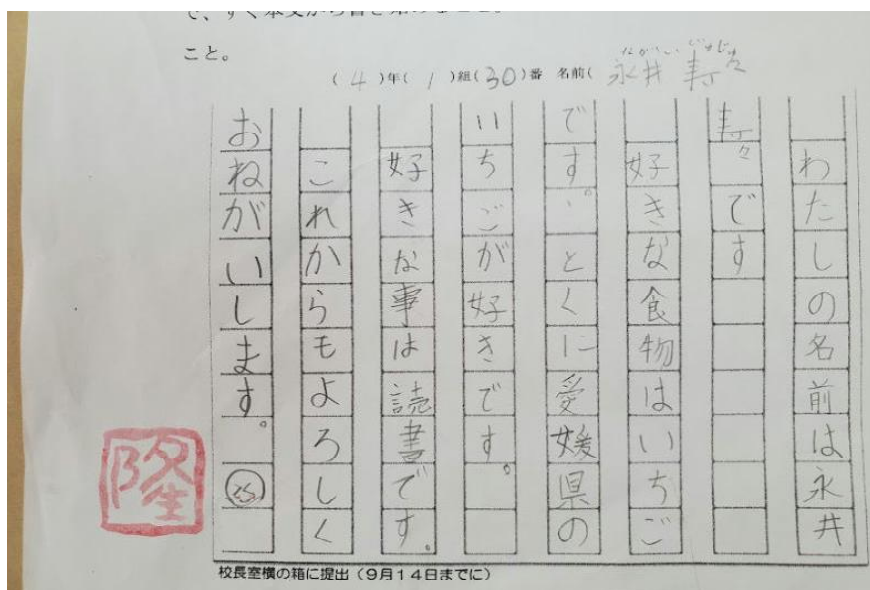 こと。
ながい じゅじゅ
(4)年(1)組(30)番 名前(永井 寿々
わたしの名前は永井
寿々です
好きな食物はいちご
です。とくに愛媛県の
いちごが好きです。
好きな事は読書です。
これからもよろしく
おねがいします。
隆
校長室横の箱に提出(9月14日までに)